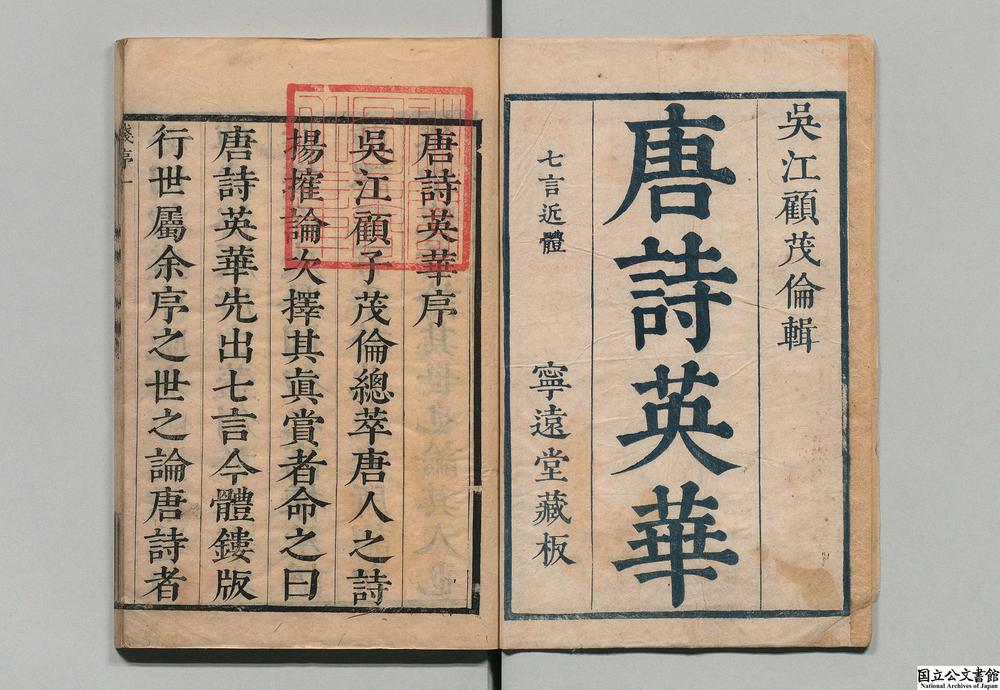 吳江顧茂倫輯
唐詩英華
七言近體
寧遠堂藏板
唐詩英華序
吳江顧子茂倫總萃唐人之詩
揚搉論次擇其眞賞者命之曰
唐詩英華先出七言今體鏤版
行世屬余序之世之論唐詩者
錢序
一
国立公文書館
National Archives of Japan